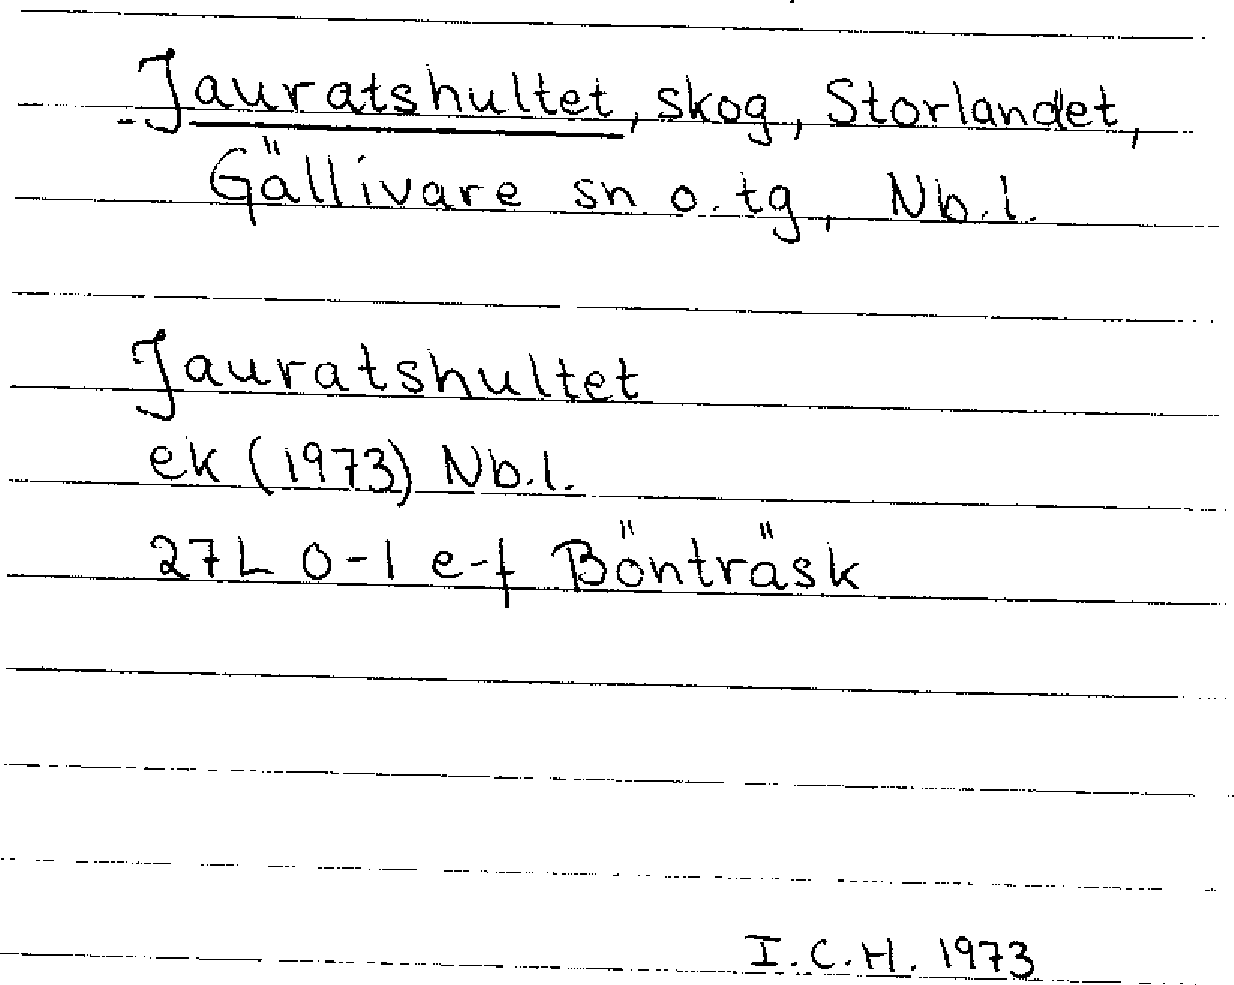 Jauratshultet, skog, Storlandet,
Gällivare sn o. tg, Nb.l.
Jauratshultet
ek (1973) Nb.l.
27L 0-1 e-f Bönträsk
I.C.H. 1973